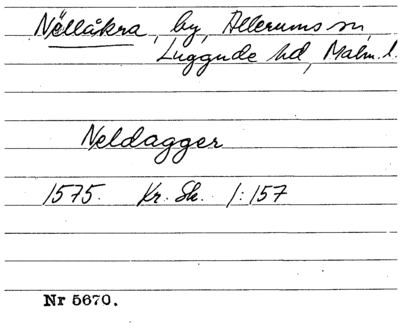 Nellåkra, by, Allerums sn,
Luggude hd, Malm. l.
Neldagger
1575. Kr. Sk. 1:157
Nr 5670.